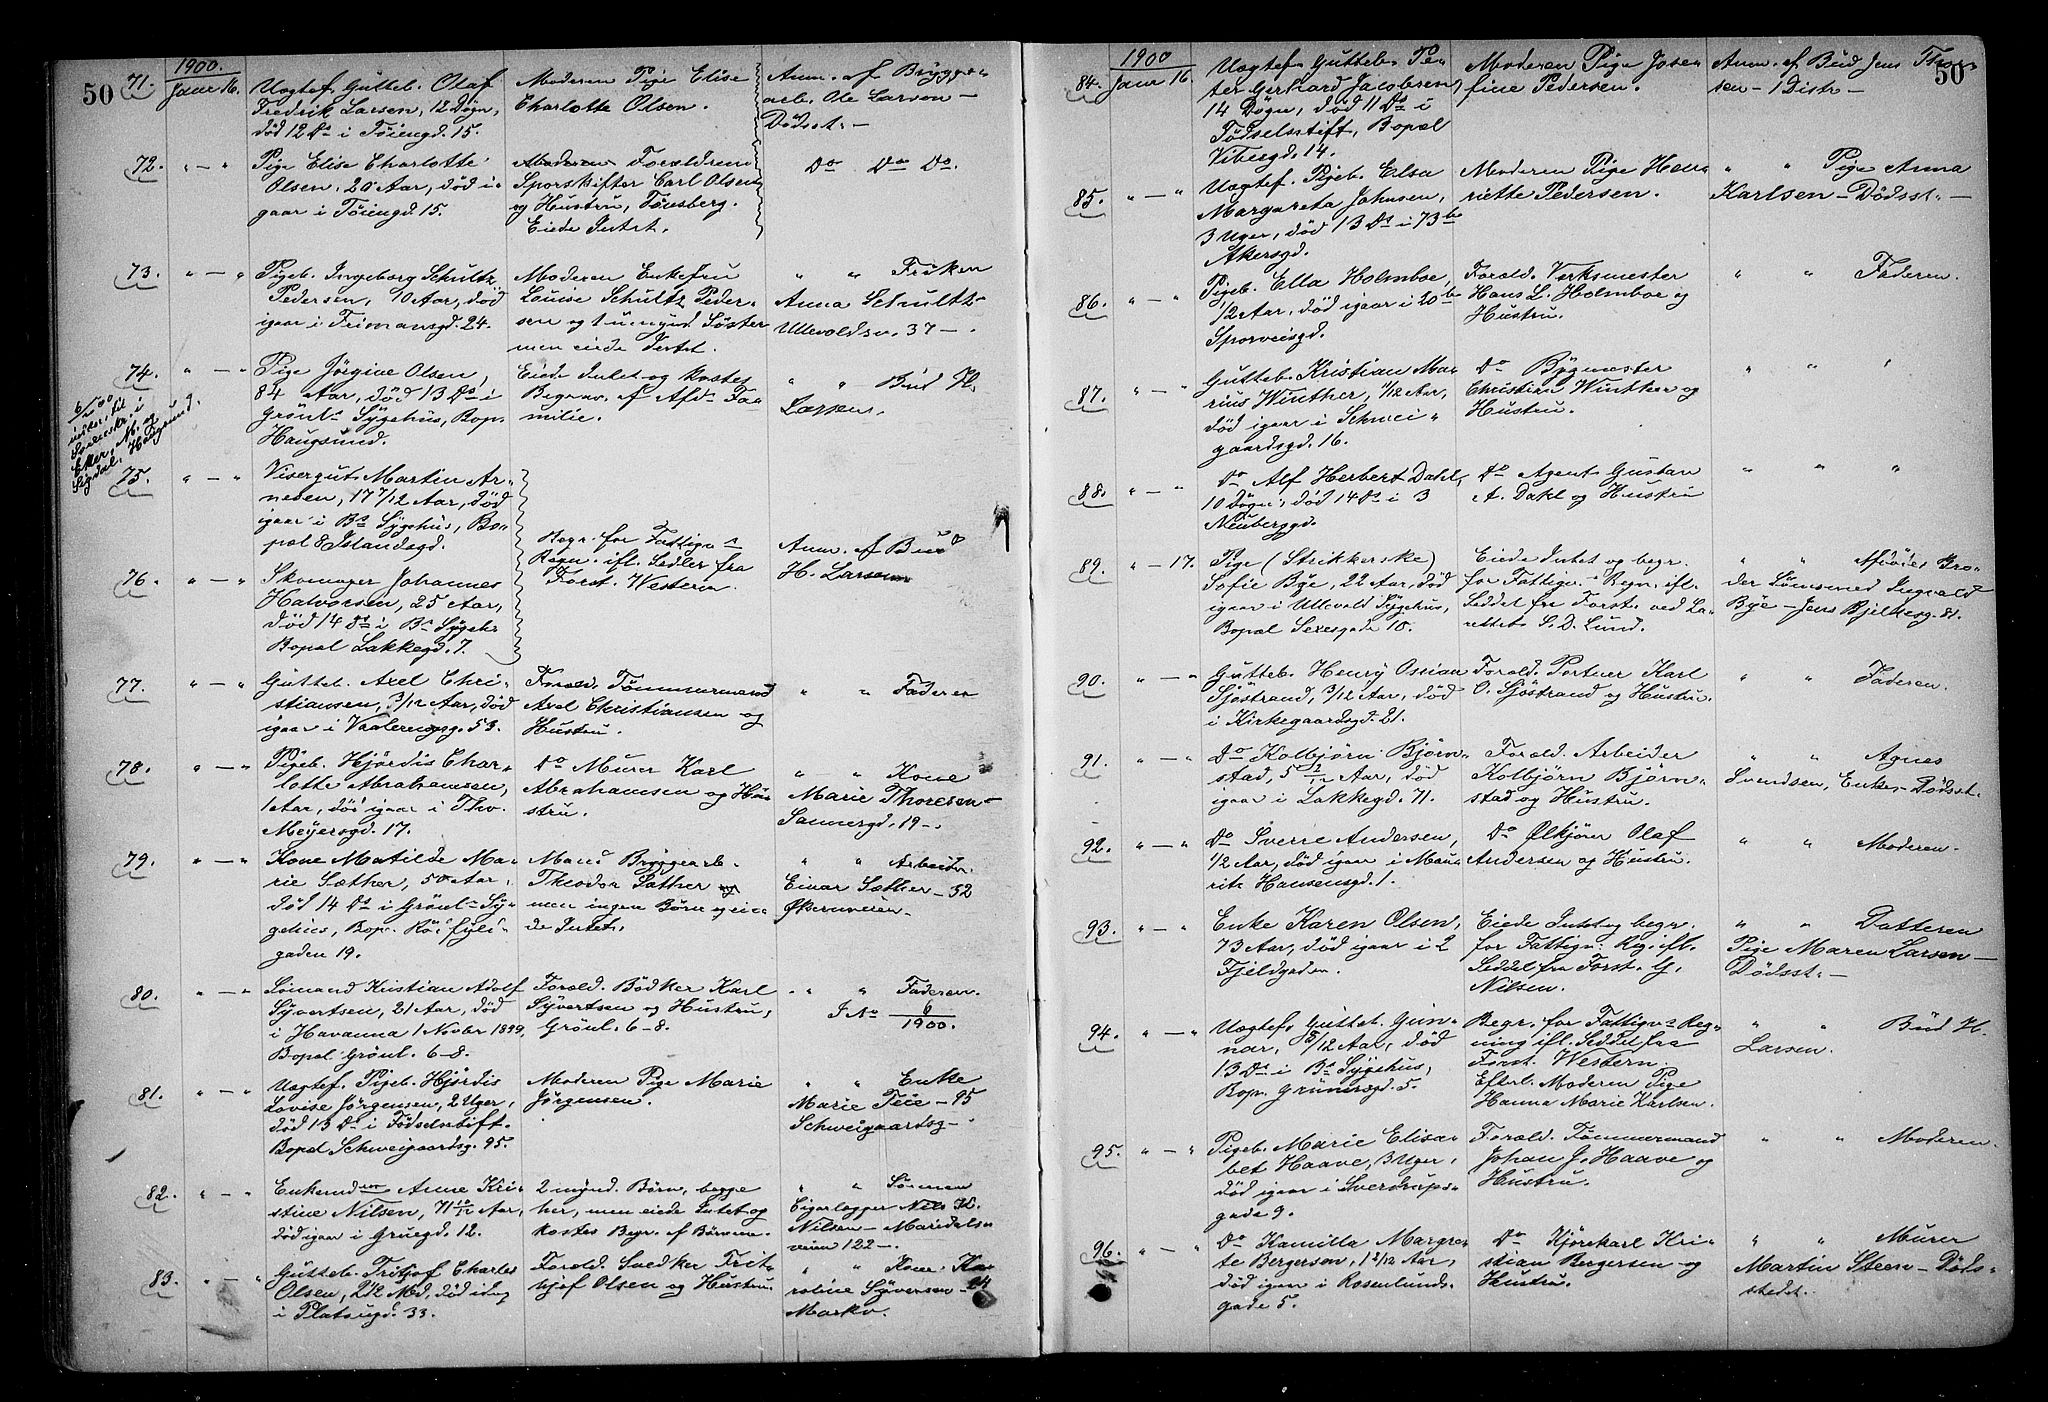 50
1900.
71.
Janr 16.
Uægtef. Gutteb. Olaf
Fredrik Larsen, 12 Døgn,
død 12 Ds i Tøiengd. 15.
Moderen Pige Elise
Charlotte Olsen.
Anm. af Brygge-
arb. Ole Larsen -
Dødsst. -
72.
" - "
Pige Elise Charlotte
Olsen, 20 Aar, død i-
gaar i Tøiengd. 15.
Moderen Forældrene
Sporskifter Carl Olsen
og Hustru, Tønsberg.
Eiede Intet.
Do Do Do.
73.
" - "
Pigeb. Ingeborg Schultz
Pedersen, 10 Aar, død
igaar i Frimansgd. 24.
Moderen Enkefru
Louise Schultz Peder-
sen og 1 umynd. Søster
men eiede Intet.
" " Frøken
Anna Schultz -
Ullevoldsv. 37 -.
74.
" - "
Pige Jørgine Olsen,
84 Aar, død 13 Ds i
Grønl. Sygehus, Bop.
Haugsund.
Eiede Intet og kostes
Begrav. af Afd. Fa-
milie.
" " Bud H.
Larsen.
Eker, M. og
Sigdal, Haugsund.
75.
" - "
Visergut Martin Ar-
nesen, 17 7/12 Aar, død
igaar i Bs Sygehus, Bo-
pæl 8 Islandsgd.
Begr. for Fattigv.s
Regn. ifl. Sedler fra
Forst. Western
Anm. af Bud
H. Larsen
76.
" - "
Skomager Johannes
Halvorsen, 25 Aar,
død 14 Ds i Bs Sygeh.
Bopæl Lakkegd. 7.
77.
" - "
Gutteb. Axel Chri-
stiansen, 3/12 Aar, død
igaar i Vaalerengg. 53.
Foræld. Tømmermand
Axel Christiansen og
Hustru.
" " Faderen
78.
" - "
Pigeb. Hjørdis Char-
lotte Abrahamsen,
1 Aar, død igaar i Thv.
Meyersgd. 17.
Do Murer Karl
Abrahamsen og Hu-
stru.
" " Kone
Marie Thoresen -
Sannergd. 19 -.
79.
" - "
Kone Matilde Ma-
rie Sæther, 50 Aar,
død 14 Ds i Grønl.s Sy-
gehus, Bop.
gaden 19.
Mand Bryggearb.
Theodor Sæther og
men ingen Børn og ei-
de Intet.
" " Arbeider
Einar Sæther - 32
Økernveien -
80.
" - "
Sømand Kristian Adolf
Syvertsen, 21 Aar, død
i Havanna 1 Novbr 1899,
Bopæl Grønl. 6-8.
Foræld. Bødker Karl
Syvertsen og Hustru,
Grønl. 6-8.
" " Faderen.
J No 6
1900.
81.
" - "
Uægtef. Pigeb. Hjørdis
Lovise Jørgensen, 2 Uger,
død 13 Ds i Fødselsstift.
Bopæl Schweigaardsg. 95.
Moderen Pige Marie
Jørgensen.
" " Enke
Marie Teie - 95
Schweigaardsg -.
82.
" - "
Enkemdm Anne Kri-
stine Nilsen, 71 10/12 Aar,
død igaar i Gruegd. 12.
2 mynd. Børn, begge
her, men eiede Intet og
kostes Begr. af Børnene.
" " Sønnen
Cigarlægger Nils K.
Nilsen - Maridals-
veien 122 -.
83.
" - "
Gutteb. Fritjof Charles
Olsen, 2 1/2 Md, død idag
i Platougd. 33.
Foræld. Snedker Frit-
hjof Olsen og Hustru.
" " Kone Ka-
roline Syversen - 24
Markv.
50
1900
84.
Janr 16.
Uægtef. Gutteb. Pe-
ter Gerhard Jacobsen,
14 Døgn, død 11 Ds i
Fødselsstift, Bopæl
Vibesgd. 14.
Moderen Pige Jose-
fine Pedersen.
Anm. af Bud Jens Thor-
sen - 1 Distr -
85.
" - "
Uægtef. Pigeb. Elsa
Margareta Johnsen,
3 Uger, død 13 Ds i 73 b
Akersgd.
Moderen Pige Hen-
riette Pedersen.
" " Pige Anna
Karlsen - Dødsst. -
86.
" - "
Pigeb. Ella Holmboe,
1/2 Aar, død igaar i 20 b
Sporveisgd.
Foræld. Verksmester
Hans L. Holmboe og
Hustru.
" " Faderen.
87.
" - "
Gutteb. Kristian Ma-
rius Winther, 11/12 Aar,
død igaar i Schwei-
gaardsgd. 16.
Do Bygmester
Christian Winther og
Hustru.
" " "
88.
" - "
Do Alf Herbert Dahl,
10 Døgn, død 14 Ds i 3
Neuberggd.
Do Agent Gustav
A. Dahl og Hustru
" " "
89.
" - 17.
Pige (Strikkerske)
Sofie Bye, 22 Aar, død
igaar i Ullevold Sygehus,
Bopæl Sexesgade 18.
Eiede Intet og begr.
for Fattigv.s Regn. ifl.
Seddel fra Forst. ved La-
rettet S. D. Lund.
" " Afdødes Bro-
der Lønsmed Ingvald
Bye - Jens Bjelkesg. 81.
90.
" - "
Gutteb. Henry Ossian
Sjöstrand, 3/12 Aar, død
i Kirkegaardsgd. 21.
Foræld. Portner Karl
O. Sjöstrand og Hustru.
" " Faderen.
91.
" - "
Do Kolbjørn Bjørn-
stad, 5 2/12 Aar, død
igaar i Lakkegd. 71.
Foræld. Arbeider
Kolbjørn Bjørn-
stad og Hustru.
" " Agnes
Svendsen, Enke - Dødsst.
92.
" - "
Do Sverre Andersen,
1/2 Aar, død igaar i Mau-
ritz Hansensgd. 1.
Do Ølkjører Olaf
Andersen og Hustru.
" " Moderen.
93.
" - "
Enke Karen Olsen,
73 Aar, død igaar i 2
Fjeldgaden.
Eiede Intet og begr.
for Fattigv. Reg. ifl.
Seddel fra Forst. G.
Nilsen.
" " Datteren
Pige Maren Larsen -
Dødsst. -
94.
" - "
Uægtef. Gutteb. Gun-
nar, 5/12 Aar, død
13 Ds i Bs Sygehus,
Bop. Grünersgd. 5.
Begr. for Fattigv.s Reg-
ning ifl. Seddel fra
Forst. Western.
Efterl. Moderen Pige
Hanna Marie Karlsen.
" " Bud H.
Larsen.
95.
" - "
Pigeb. Marie Elisa-
bet Haave, 3 Uger,
død igaar i Sverdrups-
gade 9.
Foræld. Tømmermand
Johan J. Haave og
Hustru.
" " Moderen.
96.
" - "
Do Kamilla Margre-
te Bergersen, 1 2/12 Aar,
død igaar i Rosenlunds-
gade 5.
Do Kjørekarl Kri-
stian Bergersen og
Hustru.
" " Murer
Martin Steen - Døds-
stedet.